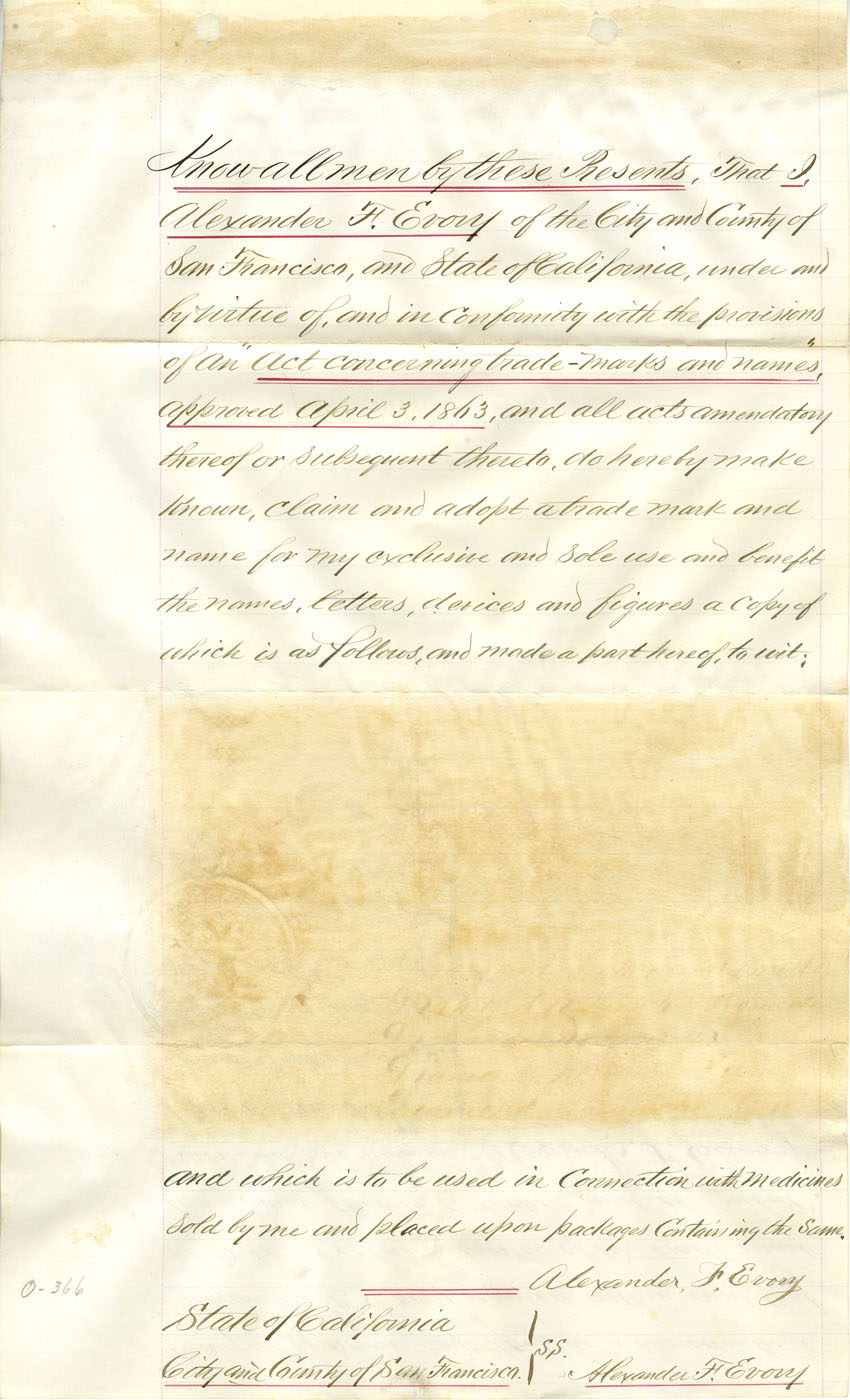 Know all men by these Presents, That I,
Alexander F. Evory of the City and County of
San Francisco, and State of California, under and
by virtue of, and in conformity with the provisions
of an "Act concerning trade-marks and names",
approved April 3, 1863, and all acts amendatory
thereof or subsequent thereto, do hereby make
known, claim and adopt a trade mark and
name for my exclusive and sole use and benefit
the names, letters, devices and figures a copy of
which is as follows, and made a part hereof, to wit:
and which is to be used in connection with medicines
sold by me and placed upon packages containing the same.
Alexander, F. Evory
O-366
State of California
City and County of San Francisco. } SS. Alexander F. Evory